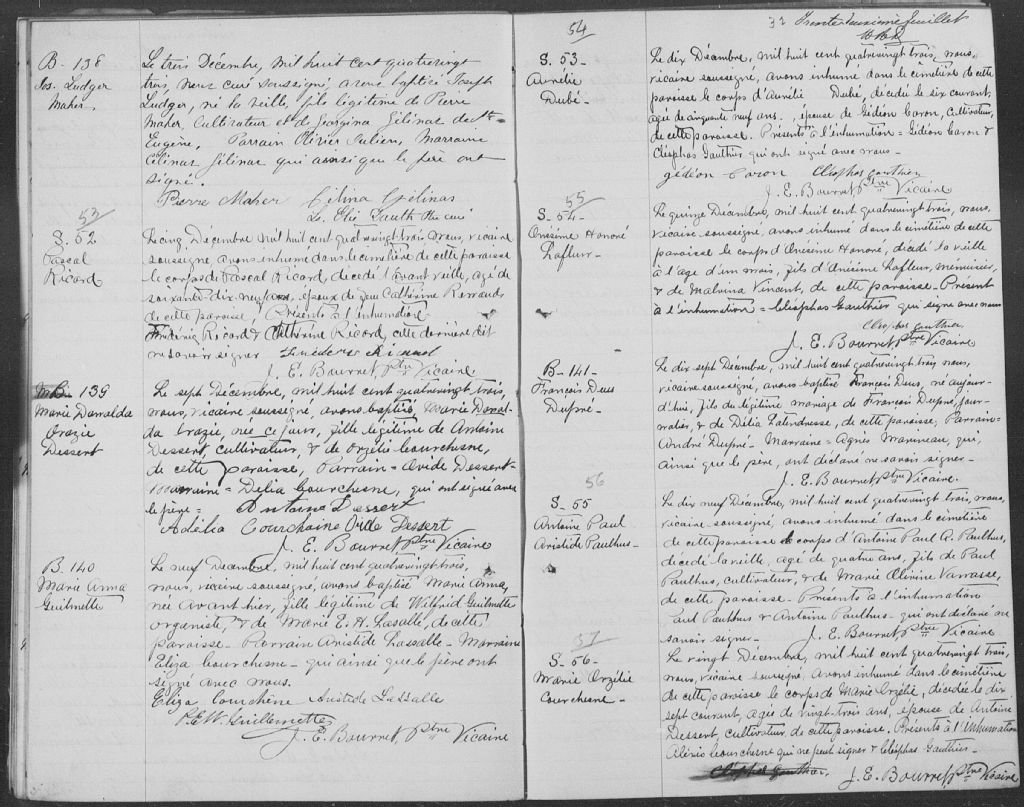 B - 138
Jos. Ludger
Maher.
Le trois Décembre, mil huit cent quatrevingt
trois, nous curé soussigné, avons baptisé Joseph
Ludger, né la veille, fils légitime de Pierre
Maher, Cultivateur et de Georgina Gélinas de Ste
Eugène, Parrain Olivier Julien, Marraine
Célinas Gélinas qui ainsi que le père ont
signé.
Pierre Maher Célina Gélinas
53
S. 52
Pascal
Ricard
Le cinq Décembre mil huit cent quatrevingt trois nous, vicaire
soussigné, avons inhumé dans le cimetière de cette paroisse
le corps de Pascal Ricard, décédé l'avant veille, agé de
soixante dix-neuf ans, époux de feue Catherine
de cette paroisse, Présents à l'inhumation
Frédéric Ricard & Catherine Ricard, cette dernière dit
ne savoir signer
J. E. Bourret, Ptre Vicaire
B 139
Marie Donalda
Orazie
Dessert
Le sept Décembre, mil huit cent quatrevingt trois,
nous, vicaire soussigné, avons baptisé, Marie Donal-
da Orazie, née ce jour, fille légitime de Antoine
Dessert, cultivateur, & de Orzélie Courchesne,
de cette paroisse, Parrain = Ovide Dessert -
Marraine = Delia Courchesne, qui ont signé avec
le père = Antoine Dessert
Adélia Courchaine Ovide Dessert
J. E. Bourret Ptre Vicaire
B. 140
Marie Anna
Guilmette
Le neuf Décembre, mil huit cent quatrevingt trois,
nous vicaire soussigné, avons baptisé Marie Anna,
née avant hier, fille légitime de Wilfrid Guilmette
organiste, & de Marie E. H. Lasalle, de cette
paroisse - Parrain Aristide Lassalle - Marraine
Eliza Courchesne - qui ainsi que le père ont
signé avec nous.
Eliza Courchène Aristide LaSalle
P.E.W. Guillemette
J. E. Bourret, Ptre Vicaire
32 Trente deuxième feuillet
54
S. 53 -
Aurélie
Dubé -
Le dix Décembre, mil huit cent quatrevingt trois, nous,
vicaire soussigné, avons inhumé dans le cimetière de cette
paroisse le corps d'Aurélie Dubé, décédée le six courant,
agée de cinquante neuf ans, épouse de Gédéon Caron, Cultivateur,
de cette paroisse. Présents à l'inhumation = Gédéon Caron &
Cléophas Gauthier qui ont signé avec nous -
gédéon Caron Cléophas gauthier
J. E. Bourret, Ptre Vicaire
55
S. 54 -
Onésime Honoré
Lafleur -
Le quinze Décembre, mil huit cent quatrevingt trois, nous,
vicaire soussigné, avons inhumé dans le cimetière de cette
paroisse le corps d'Onésime Honoré, décédé la veille
à l'age d'un mois, fils d'Onésime Lafleur, menuisier,
& de Malvina Vincent, de cette paroisse - Présent
à l'inhumation = Cléophas Gauthier qui signe avec nous
Cléophas gauthier.
J. E. Bourret Ptre Vicaire
B - 141 -
François Dus
Dupré -
Le dix sept Décembre, mil huit cent quatrevingt trois, nous,
vicaire soussigné, avons baptisé François Dus, né aujour-
d'hui, fils du légitime mariage de François Dupré, jour-
nalier, & de Délia Latendresse, de cette paroisse, Parrain =
André Dupré - Marraine = Agnès, qui,
ainsi que le père, ont déclaré ne savoir signer -
J. E. Bourret Ptre Vicaire.
56
S - 55
Antoine Paul
Aristide Paulhus -
Le dix neuf Décembre, mil huit cent quatrevingt trois, nous,
vicaire soussigné, avons inhumé dans le cimetière
de cette paroisse le corps d'Antoine Paul A. Paulhus,
décédé la veille, agé de quatre ans, fils de Paul
Paulhus, cultivateur, & de Marie Olivine Vanasse,
de cette paroisse - Présents à l'inhumation
Paul Paulhus & Antoine Paulhus - qui ont déclaré ne
savoir signer - J. E. Bourret, Ptre Vicaire
57
S - 56 -
Marie Orzélie
Courchesne -
Le vingt Décembre, mil huit cent quatrevingt trois,
nous, vicaire soussigné, avons inhumé dans le cimetière
de cette paroisse le corps de Marie Orzélie, décédée le dix
sept courant, agée de vingt-trois ans, épouse de Antoine
Dessert, Cultivateur, de cette paroisse. Présents à l'inhumation
Aléxis Courchesne qui ne peut signer & Cléophas Gauthier -
Cléophas gauthier. J. E. Bourret, Ptre Vicaire